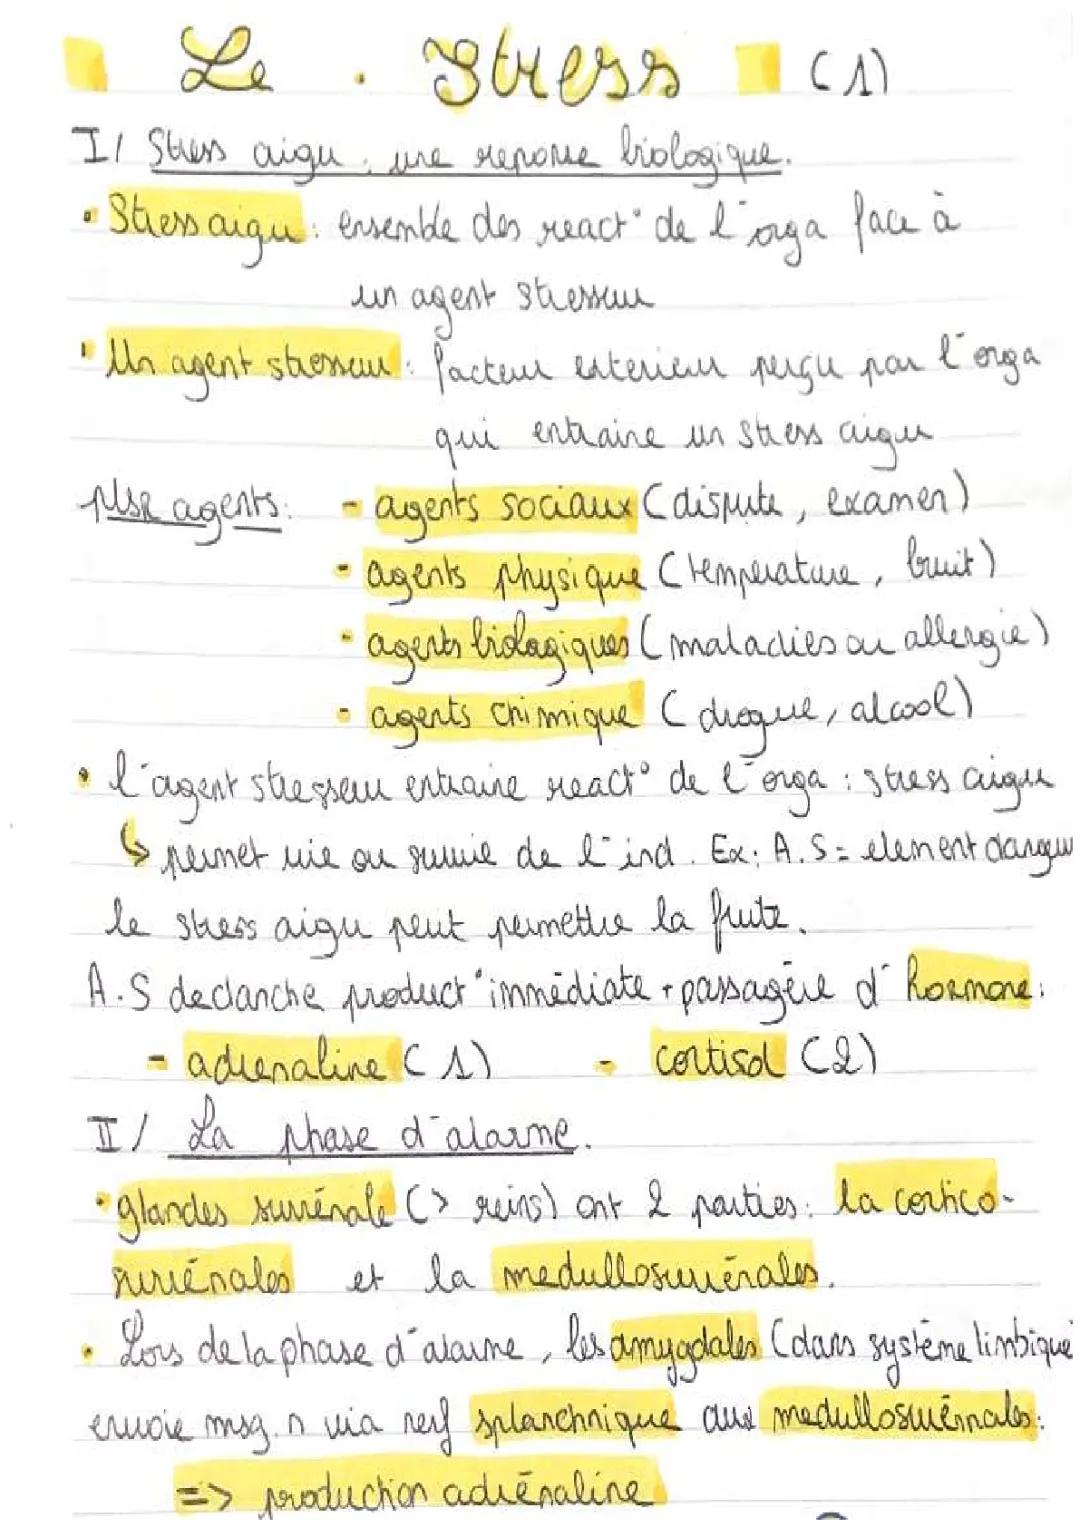 Le Stress (1)
I/ Stress aigu, une reponse biologique.
• Stress aigu : ensemble des react° de l'orga face à
un agent stresseur
• Un agent stresseur : facteur exterieur perçu par l'orga
qui entraine un stress aigu
plsr agents : - agents sociaux (dispute, examen)
- agents physique (température, bruit)
- agents biologiques (maladies ou allergie)
- agents chimique (drogue, alcool)
• l'agent stresseur entraine react° de l'orga : stress aigu
↳ permet vie ou survie de l'ind. Ex: A.S = element dangeu
le stress aigu peut permettre la fuite.
A.S declanche product° immédiate + passagère d'hormone :
- adrenaline (1) - cortisol (2)
II/ La phase d'alarme.
• glandes surrénale (> reins) ont 2 parties : la cortico-
surrénales et la medullosurrénales.
• Lors de la phase d'alarme, les amygdales (dans système limbique
envoie msg. n via nerf splanchnique aux medullosurrénales :
=> production adrénaline